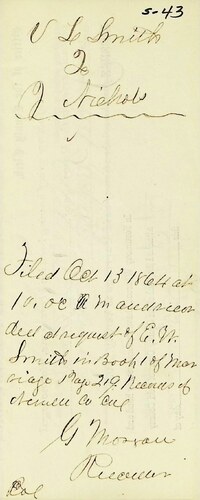 5-43
V L Smith
To
J Nichols
Filed Oct 13 1864 at
10. oc A m and recor
ded at request of E. W.
Smith in Book 1 of Mar
riage Page 219 Records of
Co Cal
G Morrow
Recorder